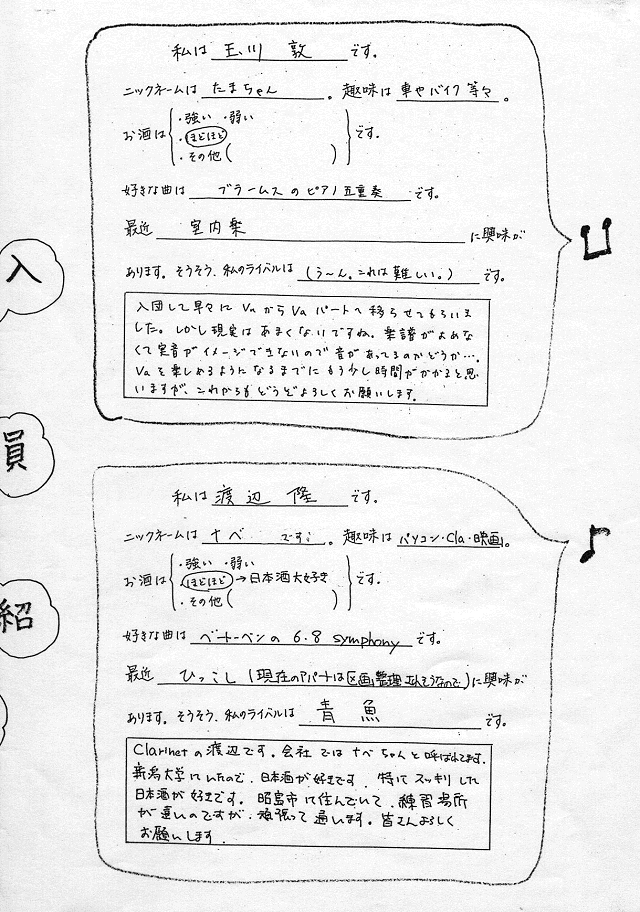 私は 玉川 敦 です。
ニックネームは たまちゃん 。趣味は 車やバイク等々 。
お酒は ・強い ・弱い
・ほどほど です。
・その他( )
好きな曲は ブラームスのピアノ五重奏 です。
最近 室内楽 に興味が
あります。そうそう、私のライバルは (う〜ん。これは難しい。) です。
入団して早々に VnからVaパートへ移らせてもらいま
した。しかし現実はあまくないですね。楽譜がよめな
くて実音がイメージできないので音があってるのかどうか…。
Vaを楽しめるようになるまでにもう少し時間がかかると思
いますが、これからもどうぞよろしくお願いします。
入
員
紹
私は 渡辺 隆 です。
ニックネームは ナベ です 。趣味は パソコン・Cla・映画。
お酒は ・強い ・弱い
・ほどほど→日本酒大好き です。
・その他( )
好きな曲は ベートーベンの 6・8 symphony です。
最近 ひっこし(現在のアパートは区画整理されそうなので)に興味が
あります。そうそう、私のライバルは 青魚 です。
Clarinetの渡辺です。会社ではナベちゃんと呼ばれてます。
新潟大学にいたので、日本酒が好きです。特にスッキリした
日本酒が好きです。昭島市に住んでいて、練習場所
が遠いのですが、頑張って通います。皆さんよろしく
お願いします。